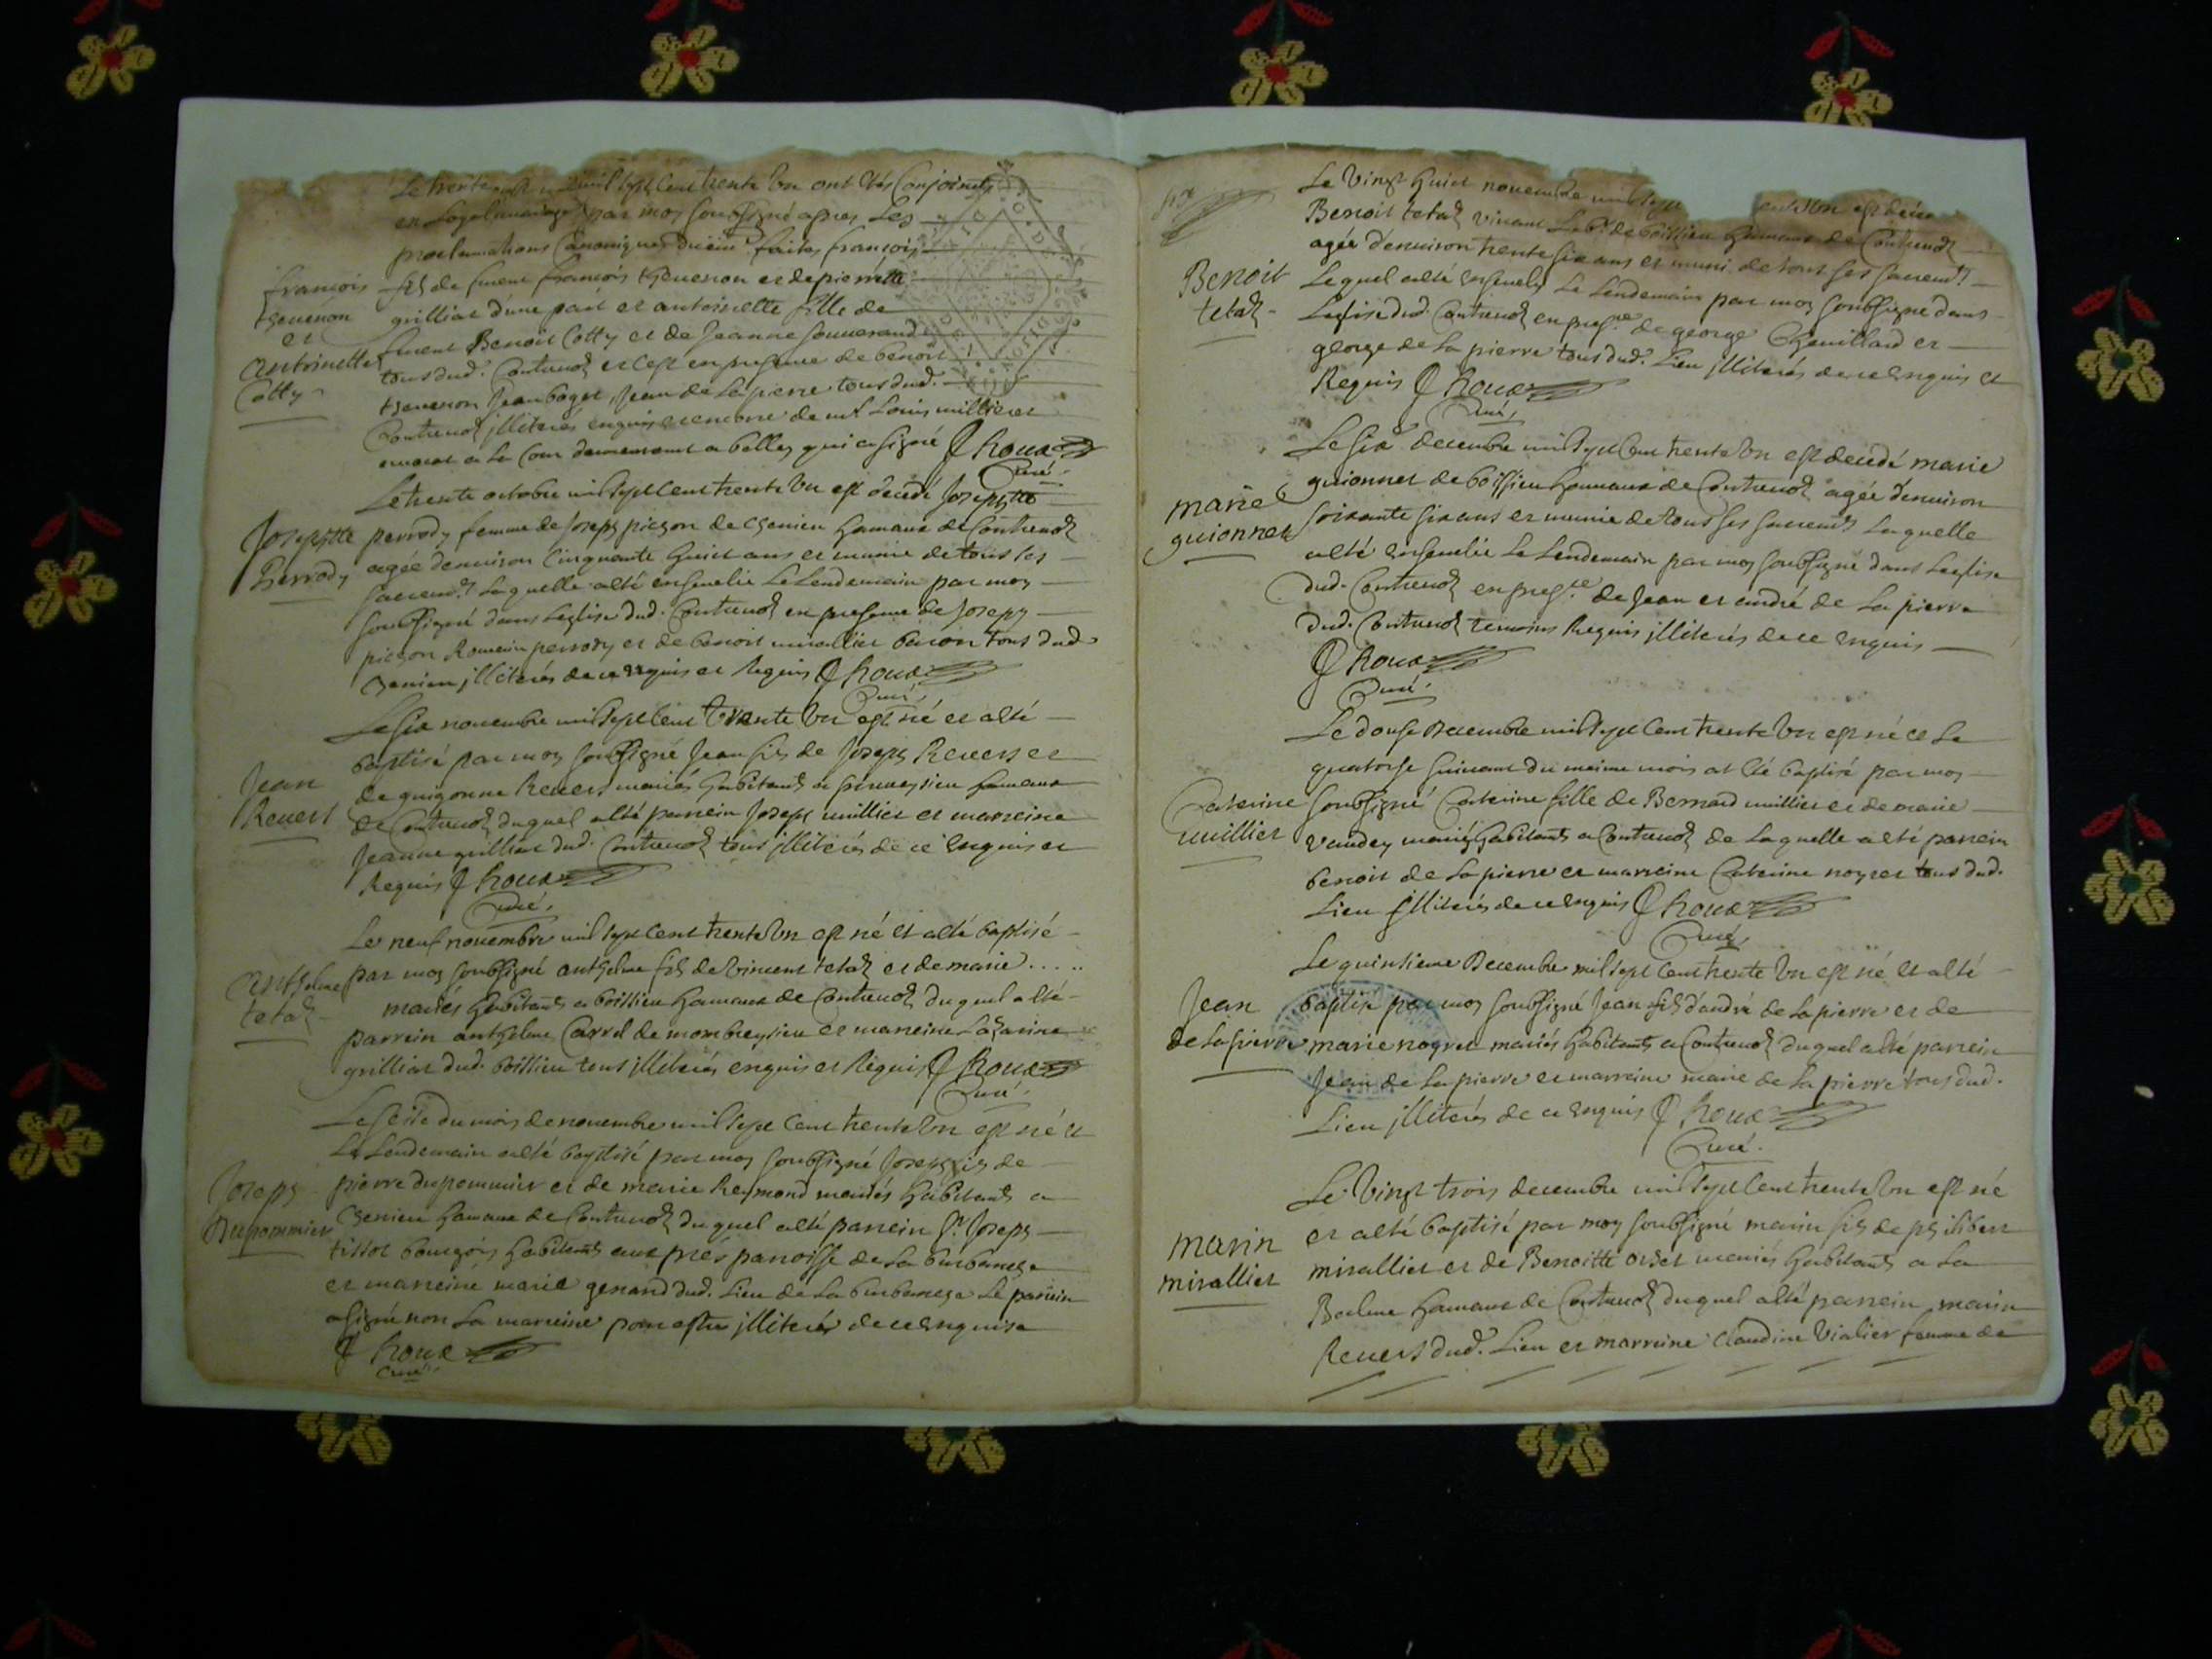 Le trente mil sept cent trente un ont étés Conjoints
en par moy soubsigné apres Les
proclamations Canoniques faites françois
françois
thevenon
et
Antoinette
Cotty
fils de fheut françois thevenon et de pierrette
grilliat d'une part et antoinette fille de
Benoit Cotty et de Jeanne
tous dud. Contrevoz et c'est en presence de benoit
thevenon Jean boget, Jean de La pierre tous dud.
Contrevoz illiterés enquis de mr Louis millieret
a La Cour demeurant a belley qui a signé J Roux
Curé
Josephtte
Perrody
Le trente octobre mil sept cent trente un est decédé Josephtte
perrody femme de Joseph pichon de Chemieu hameau de Contrevoz
agée d'environ Cinquante huict ans et munie de tous ses
sacremts Laquelle a été ensevelie Le Lendemain par moy
soubsigné dans Leglise dud. Contrevoz en presence de Joseph
pichon Romain perrody et de benoit mirallier baron tous dud.
Chemieu illiterés de ce enquis et Requis J Roux
Curé
Jean
Revert
Le six novembre mil sept cent trente un est né et a été
baptisé par moy soubsigné Jean fils de Joseph Revert et
de guigonne Revert mariés habitants a hameau
de Contrevoz duquel a été parrein Joseph millier et marreine
Jeanne grilliat dud. Contrevoz tous illiterés de ce enquis et
Requis J Roux
Curé
Anthelme
tetaz
Le neuf novembre mil sept cent trente un est né et a été baptisé
par moy soubsigné anthelme fils de vincent tetaz et de marie . . . . .
mariés habitants a boissieu hameau de Contrevoz duquel a été
parrein anthelme Carrel de mombreysieu et marreine Lazarine
grilliat dud. boissieu tous illiterés enquis et Requis J Roux
Curé
Joseph
Dupommier
Le seize du mois de novembre mil sept cent trente un est né et
Le Lendemain a été baptisé par moy soubsigné Joseph fils de
pierre dupommier et de marie Reymond mariés habitants a
Chemieu hameau de Contrevoz duquel a été parrein Sr Joseph
tissot bourgois habitant aux prés paroisse de La burbanche
et marreine marie genand dud. Lieu de La burbanche Le parrein
a signé non La marreine pour estre illiterée de ce enquise
J Roux
Curé
Le vingt huict novembre mil sept est
Benoit
tetaz
Benoit tetaz vivant de boissieu hameau de Contrevoz
agée d'environ trente six ans et muni de tous ses sacremts
Lequel a été ensevely Le Lendemain par moy soubsigné dans
Leglise dud. Contrevoz en presce de george Chevillard et
george de La pierre tous dud. Lieu illiterés de ce enquis et
Requis J Roux
Curé
marie
guionnet
Le six decembre mil sept cent trente un est decedé marie
guionnet de boissieu hameau de Contrevoz agée d'environ
soixante six ans et munie de tous ses sacremts Laquelle
a été ensevelie Le Lendemain par moy soubsigné dans Leglise
dud. Contrevoz en presce de Jean et andré de La pierre
dud. Contrevoz temoins Requis illiterés de ce enquis
J Roux
Curé
Caterine
millier
Le douse Decembre mil sept cent trente un est né et Le
quatorse suivant du meime mois at été baptisé par moy
soubsigné Caterine fille de Bernard millier et de marie
vandey mariés habitants a Contrevoz de Laquelle a été parrein
benoit de La pierre et marreine Caterine noyret tous dud.
Lieu illiterés de ce enquis J Roux
Curé
Jean
de La pierre
Le quinsieme Decembre mil sept cent trente un est né et a été
baptisé par moy soubsigné Jean fils d'andré de La pierre et de
marie noyret mariés habitants a Contrevoz duquel a été parrein
Jean de La pierre et marreine marie de La pierre tous dud.
Lieu illiterés de ce enquis J Roux
Curé
marin
mirallier
Le vingt trois decembre mil sept cent trente un est né
et a été baptisé par moy soubsigné marin fils de philibert
mirallier et de Benoitte orset mariés habitants a La
Balme hameau de Contrevoz duquel a été parrein marin
Revert dud. Lieu et marreine Claudine vialier femme de